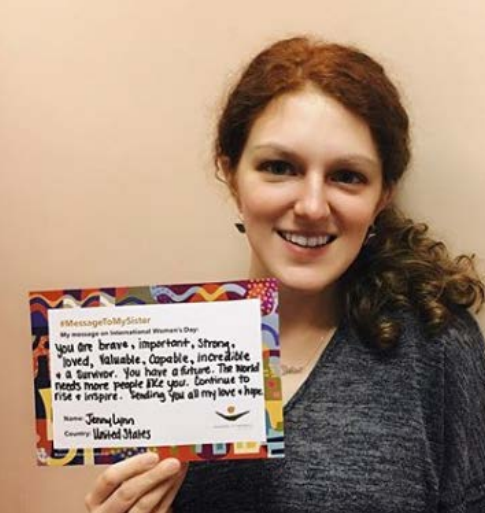 #MessageToMySister
My message on International Women's Day:
You are brave, important, strong,
loved, valuable, capable, incredible
+ a survivor. You have a future. The world
needs more people like you. Continue to
rise + inspire. Sending you all my love + hope
Name: JennyLynn
Country: United States